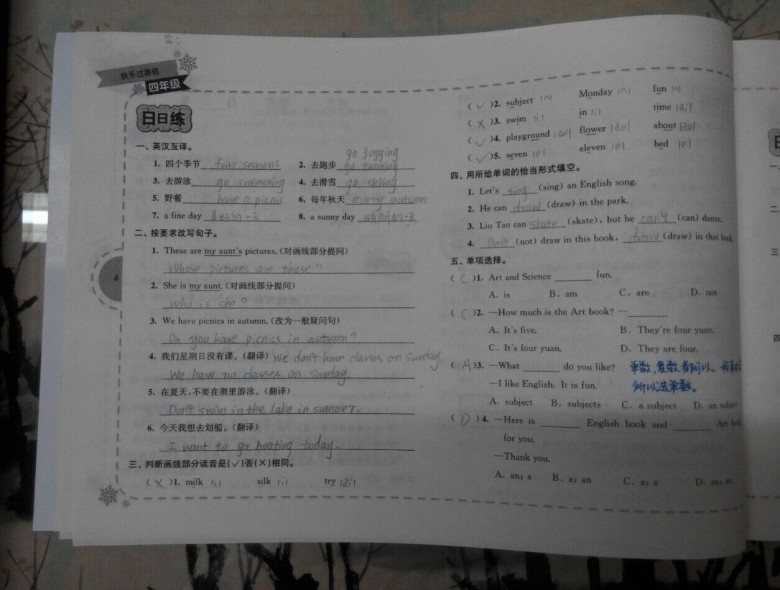 快乐过寒假
四年级
日日练
一、英汉互译。
1. 四个季节 four seasons 2. 去跑步 go jogging go running
3. 去游泳 go swimming 4. 去滑雪 go skiing
5. 野餐 have a picnic 6. 每年秋天 every autumn
7. a fine day 8. a sunny day
二、按要求改写句子。
1. These are my aunt's pictures. (对画线部分提问)
Whose pictures are these?
2. She is my aunt. (对画线部分提问)
Who is she?
3. We have picnics in autumn. (改为一般疑问句)
Do you have picnics in autumn?
4. 我们星期日没有课。(翻译) We don't have classes on Sunday.
We have no classes on Sunday.
5. 在夏天,不要在湖里游泳。(翻译)
Don't swim in the lake in summer.
6. 今天我想去划船。(翻译)
I want to go boating today.
三、判断画线部分读音是(✓)否(×)相同。
(×)1. milk silk try
(✓)2. subject Monday fun
(×)3. swim in time
(✓)4. playground flower about
(✓)5. seven eleven bed
四、用所给单词的恰当形式填空。
1. Let's sing (sing) an English song.
2. He can draw (draw) in the park.
3. Liu Tao can skate (skate), but he can't (can) dance.
4. Don't (not) draw in this book, draw (draw) in that book.
五、单项选择。
(C)1. Art and Science ______ fun.
A. is B. am C. are D. not
(C)2. —How much is the Art book? —______
A. It's five. B. They're four yuan.
C. It's four yuan. D. They are four.
(A)3. —What ______ do you like? 单数,复数都可以。
—I like English. It is fun. 所以选单数。
A. subject B. subjects C. a subject D. an
(D)4. —Here is ______ English book and ______ Art
for you.
—Thank you.
A. an; a B. a; an C. a; a D. an; an
6